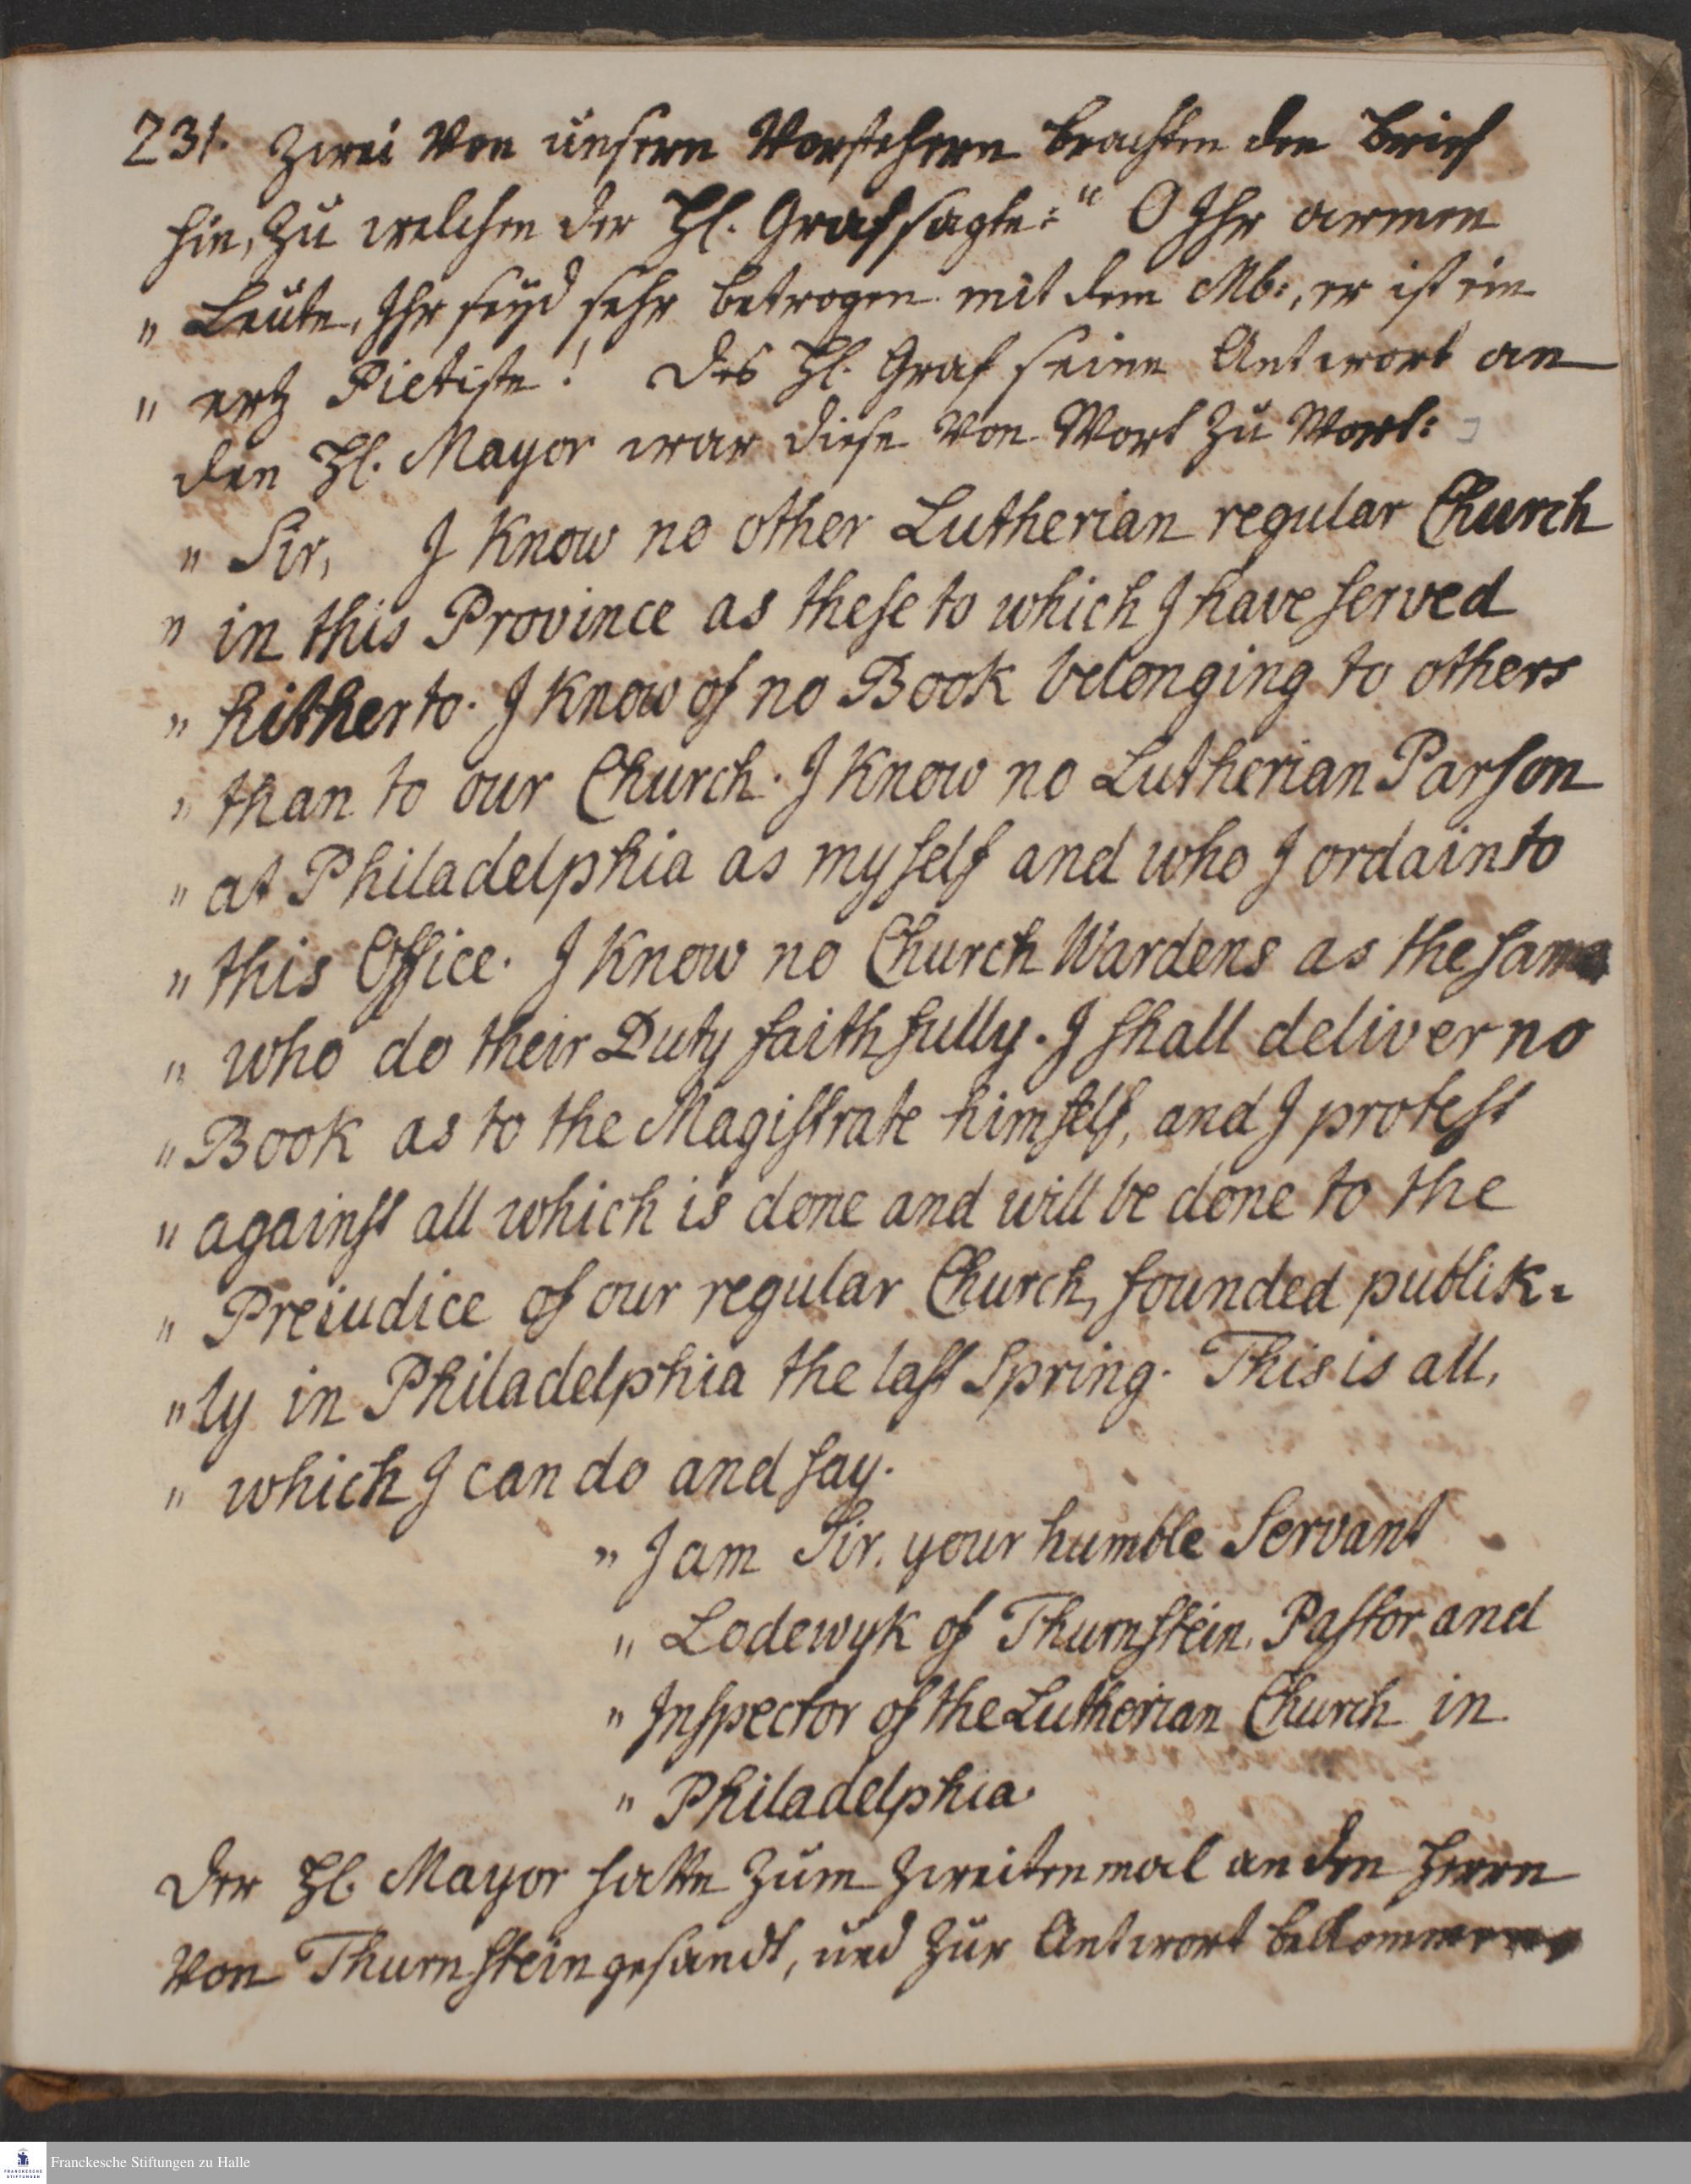 231. Zwei von unsern Vorstehern brachten den Brief
hin, zu welchen der H. Graf sagte: " O Ihr armen
" Leute, Ihr seyd sehr betrogen mit dem Mb:, er ist ein
" ertz Pietiste! Des H. Graf seine Antwort an
den H. Mayor war diese von Wort zu Wort:
" Sir, I know no other Lutherian regular Church
" in this Province as these to which I have served
" hitherto. I know of no Book belonging to others
" than to our Church. I know no Lutherian Parson
" at Philadelphia as my self and who I ordain to
" this Office. I know no Church Wardens as the same
" who do their Duty faithfully. I shall deliver no
" Book as to the Magistrate himself, and I protest
" against all which is done and will be done to the
" Preiudice of our regular Church, founded publik=
" ly in Philadelphia the last Spring. This is all,
" which I can do and say.
" I am Sir, your humble Servant
" Lodewyk of Thurnstein, Pastor and
" Inspector of the Lutherian Church in
" Philadelphia.
Der H. Mayor hatte zum zweiten mal an den Herrn
von Thurnstein gesandt, und zur Antwort bekommen
Franckesche Stiftungen zu Halle
FRANCKESCHE
STIFTUNGEN